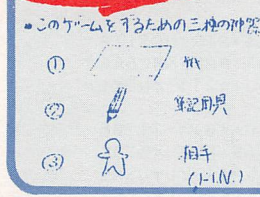 ・このゲームをするための三種の神器
① 紙
② 筆記用具
③ 相手
(J・I・N.)